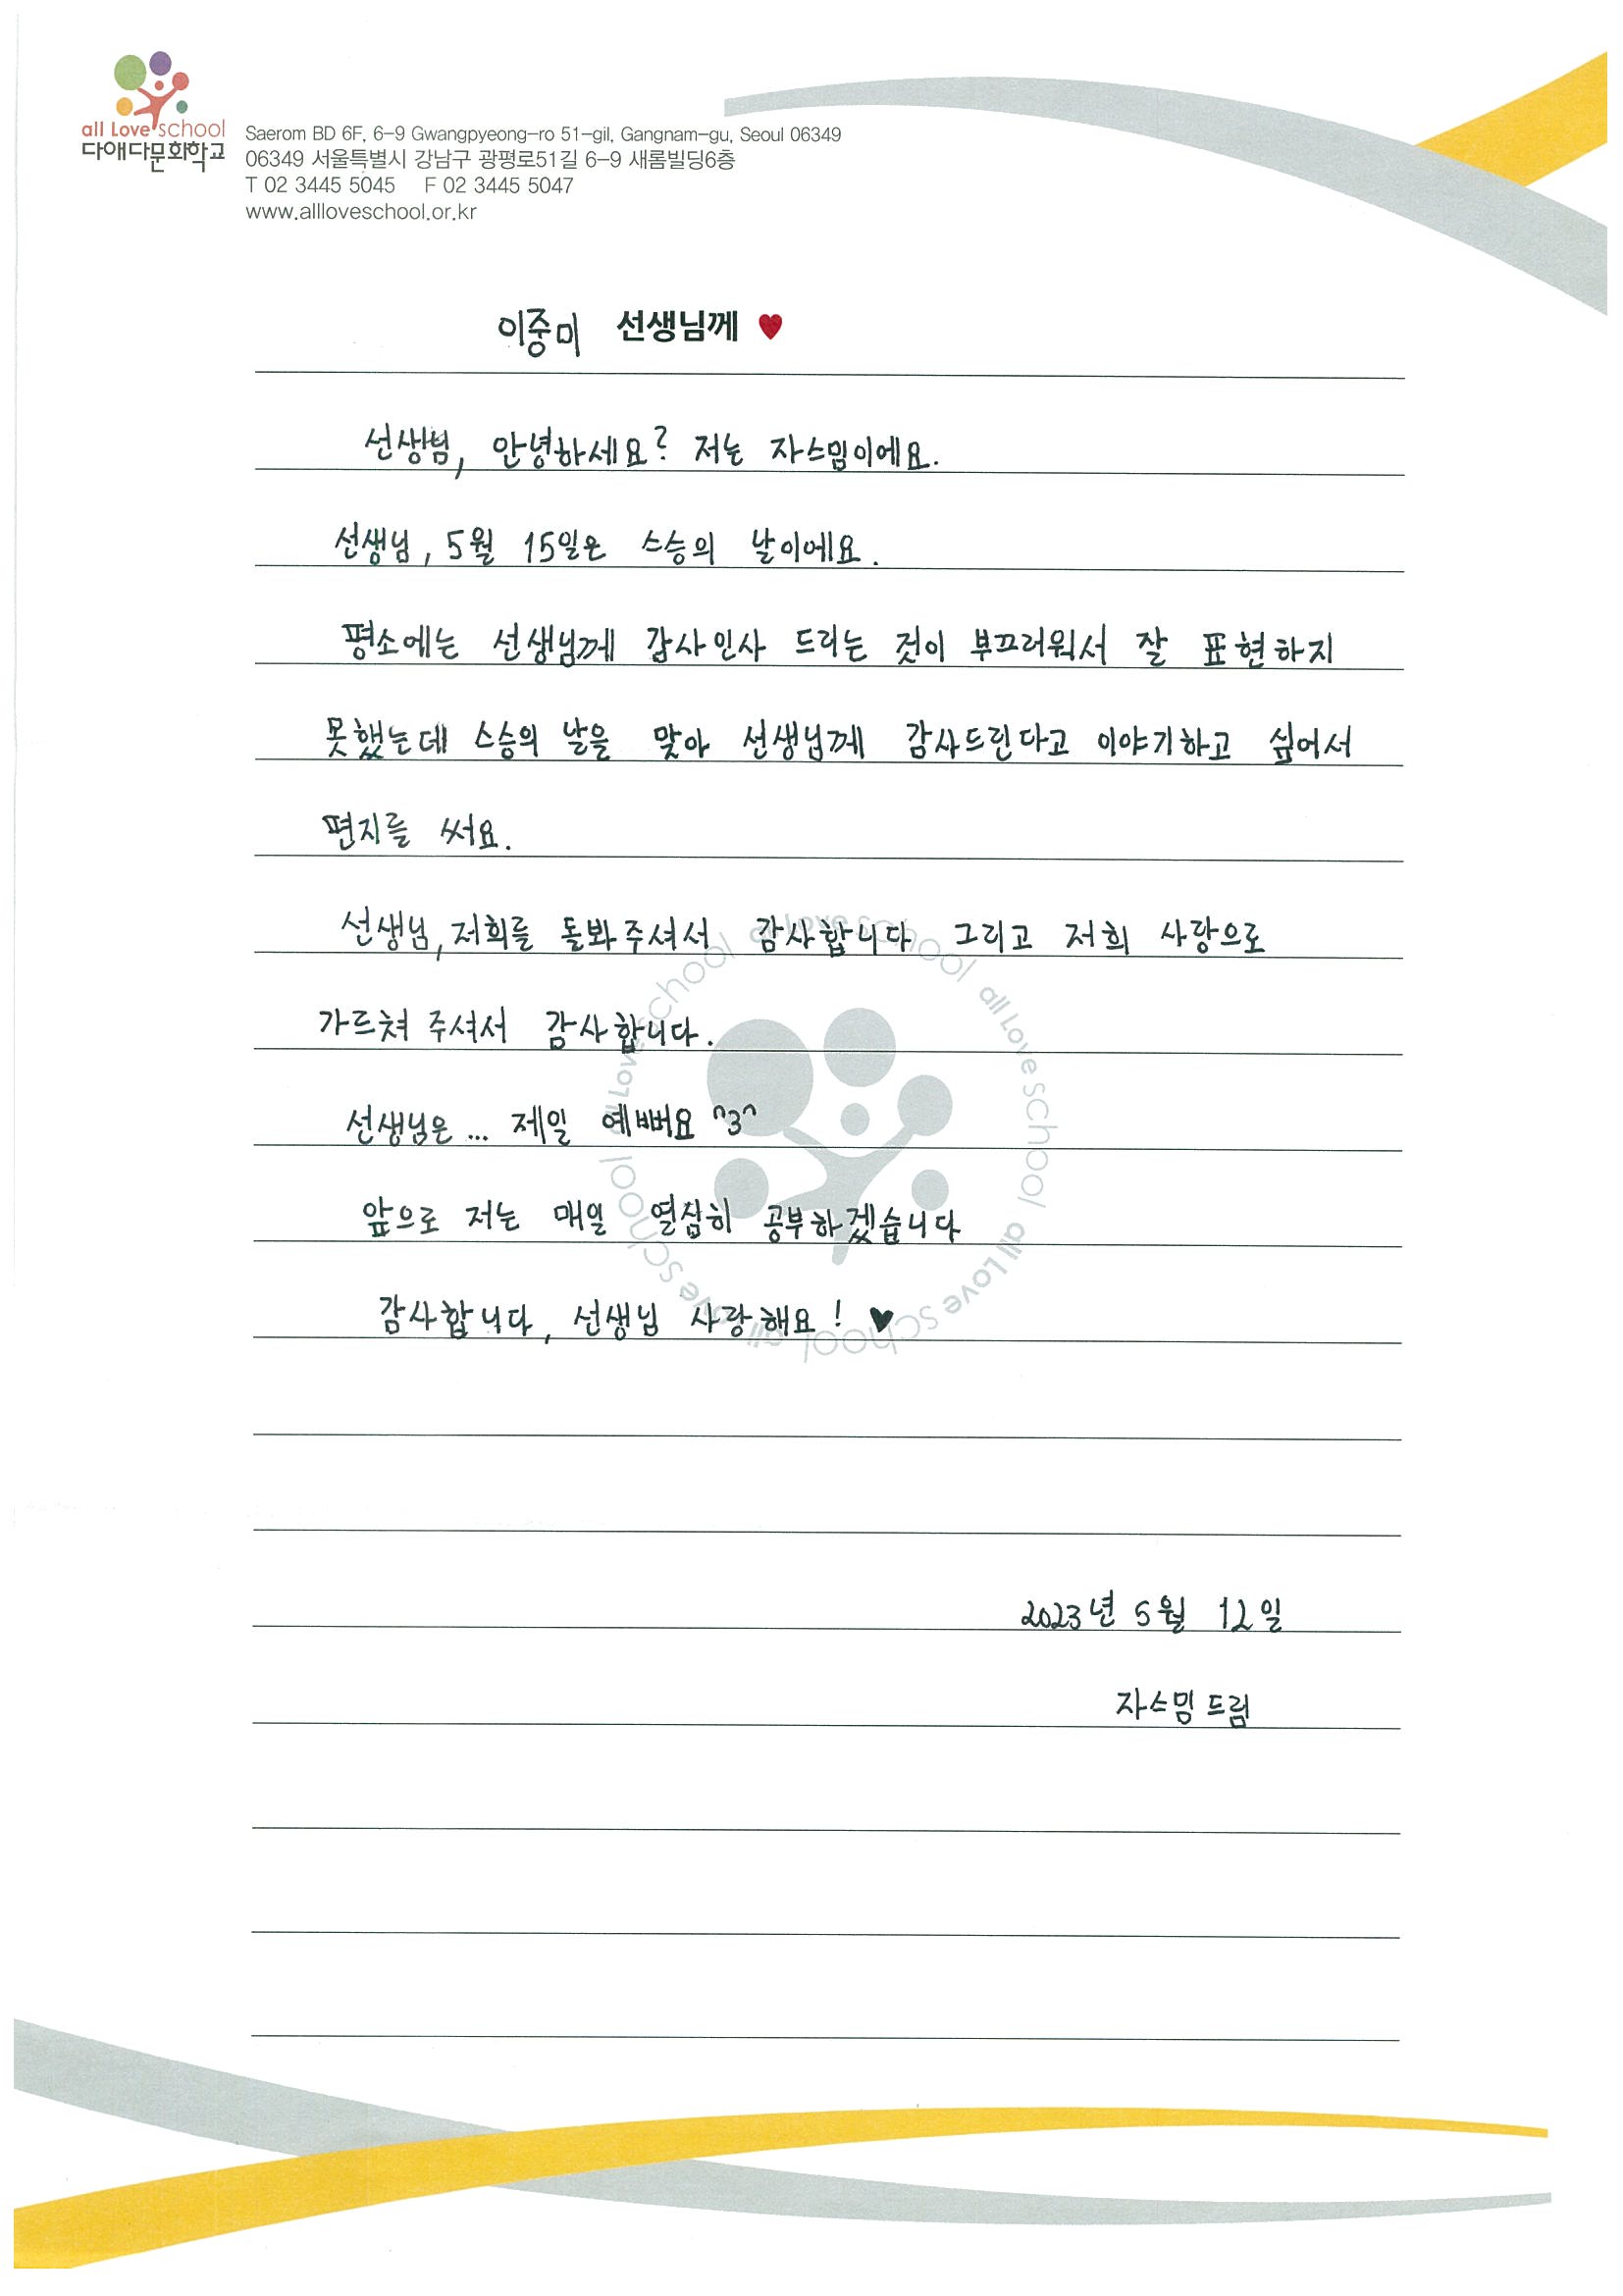 all Love school
다애다문화학교
Saerom BD 6F, 6-9 Gwangpyeong-ro 51-gil, Gangnam-gu, Seoul 06349
06349 서울특별시 강남구 광평로51길 6-9 새롬빌딩6층
T 02 3445 5045 F 02 3445 5047
www.allloveschool.or.kr
이중미 선생님께 ♥
선생님, 안녕하세요? 저는 자스밈이에요.
선생님, 5월 15일은 스승의 날이에요.
평소에는 선생님께 감사인사 드리는 것이 부끄러워서 잘 표현하지
못했는데 스승의 날을 맞아 선생님께 감사드린다고 이야기하고 싶어서
편지를 써요.
선생님, 저희를 돌봐주셔서 감사합니다 그리고 저희 사랑으로
가르쳐 주셔서 감사합니다.
선생님은... 제일 예뻐요 ^3^
앞으로 저는 매일 열심히 공부하겠습니다
감사합니다, 선생님 사랑해요! ♥
all Love school all Love school all Love school all Love school all Love school
2023년 5월 12일
자스밈 드림